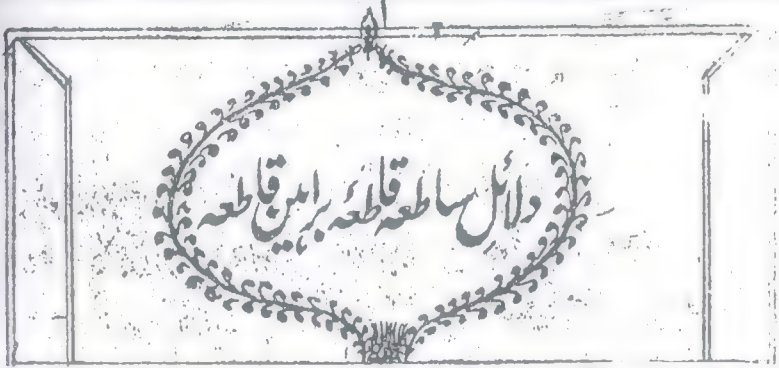 دلائلِ ساطعہ قاطعۂ براہین قاطعہ